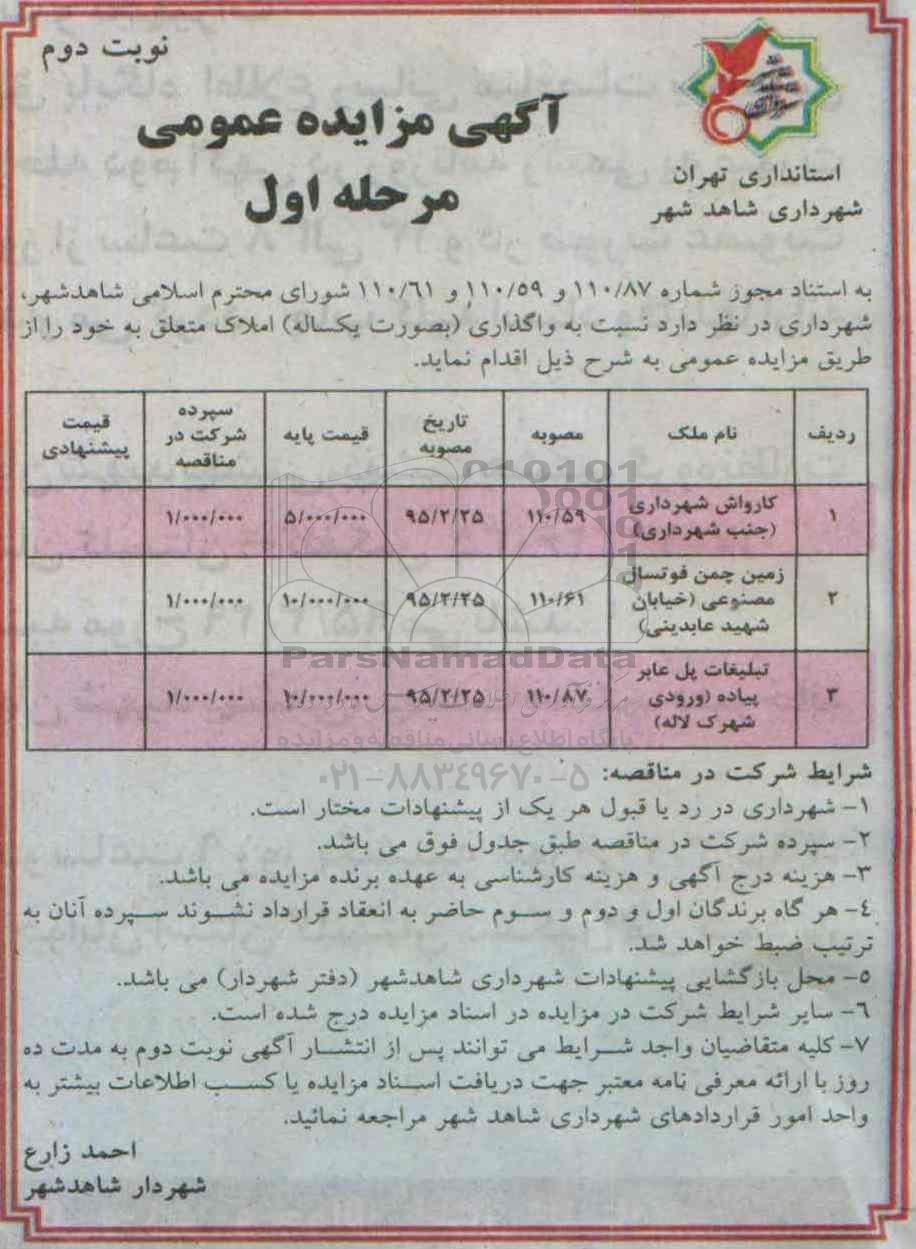 نوبت دوم
آگهی مزایده عمومی
مرحله اول
استانداری تهران
شهرداری شاهد شهر
به استناد مجوز شماره ۱۱۰/۸۷ و ۱۱۰/۵۹ و ۱۱۰/۶۱ شورای محترم اسلامی شاهدشهر،
شهرداری در نظر دارد نسبت به واگذاری (بصورت یکساله) املاک متعلق به خود را از
طریق مزایده عمومی به شرح ذیل اقدام نماید.
ردیف | نام ملک | مصوبه | تاریخ مصوبه | قیمت پایه | سپرده شرکت در مناقصه | قیمت پیشنهادی
۱ | کارواش شهرداری (جنب شهرداری) | ۱۱۰/۵۹ | ۹۵/۲/۲۵ | ۵/۰۰۰/۰۰۰ | ۱/۰۰۰/۰۰۰
۲ | زمین چمن فوتسال مصنوعی (خیابان شهید عابدینی) | ۱۱۰/۶۱ | ۹۵/۲/۲۵ | ۱۰/۰۰۰/۰۰۰ | ۱/۰۰۰/۰۰۰
۳ | تبلیغات پل عابر پیاده (ورودی شهرک لاله) | ۱۱۰/۸۷ | ۹۵/۲/۲۵ | ۱۰/۰۰۰/۰۰۰ | ۱/۰۰۰/۰۰۰
ParsNamadData
پایگاه اطلاع رسانی مناقصه و مزایده
۰۲۱-۸۸۳۴۹۶۷۰-۵
شرایط شرکت در مناقصه:
۱- شهرداری در رد یا قبول هر یک از پیشنهادات مختار است.
۲- سپرده شرکت در مناقصه طبق جدول فوق می باشد.
۳- هزینه درج آگهی و هزینه کارشناسی به عهده برنده مزایده می باشد.
۴- هر گاه برندگان اول و دوم و سوم حاضر به انعقاد قرارداد نشوند سپرده آنان به
ترتیب ضبط خواهد شد.
۵- محل بازگشایی پیشنهادات شهرداری شاهدشهر (دفتر شهردار) می باشد.
۶- سایر شرایط شرکت در مزایده در اسناد مزایده درج شده است.
۷- کلیه متقاضیان واجد شرایط می توانند پس از انتشار آگهی نوبت دوم به مدت ده
روز با ارائه معرفی نامه معتبر جهت دریافت اسناد مزایده یا کسب اطلاعات بیشتر به
واحد امور قراردادهای شهرداری شاهد شهر مراجعه نمائید.
احمد زارع
شهردار شاهدشهر